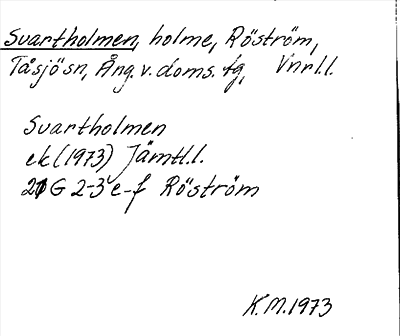 Svartholmen, holme, Röström,
Tåsjö sn, Ång. v. doms. fg, Vnrl.l.
Svartholmen
ek (1973) Jämtl.l.
21 G 2-3 e-f Röström
K.M. 1973